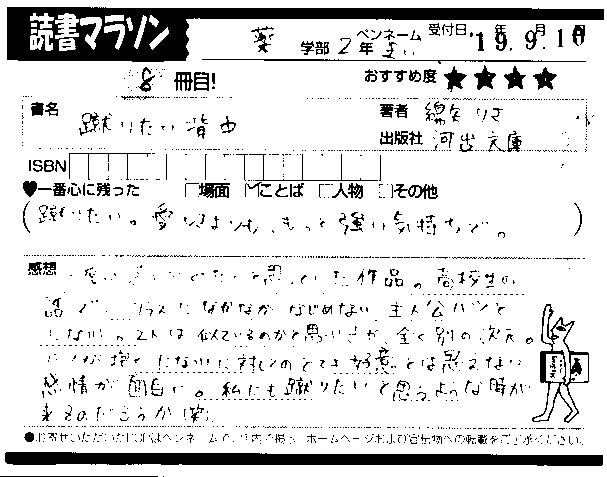 読書マラソン
薬 学部 2年 ペンネーム まい 受付日 '19.9.10
8 冊目! おすすめ度 ★★★★
書名 蹴りたい背中 著者 綿矢りさ
出版社 河出文庫
ISBN
♥一番心に残った □場面 ☑ことば □人物 □その他
(蹴りたい。愛しさよりも、もっと強い気持ちで。)
感想 思っていた作品。高校生の
話で、クラスになかなかなじめない主人公ハツと
にな川。2人は似ているのかと思いきや、全く別の次元。
ハツが抱くにな川に対してのとても好意とは思えない
感情が面白い。私にも蹴りたいと思うような時が
来るのだろうか(笑)
●お寄せいただいた ペンネームで、 ホームページおよび宣伝物への転載をご了承ください。